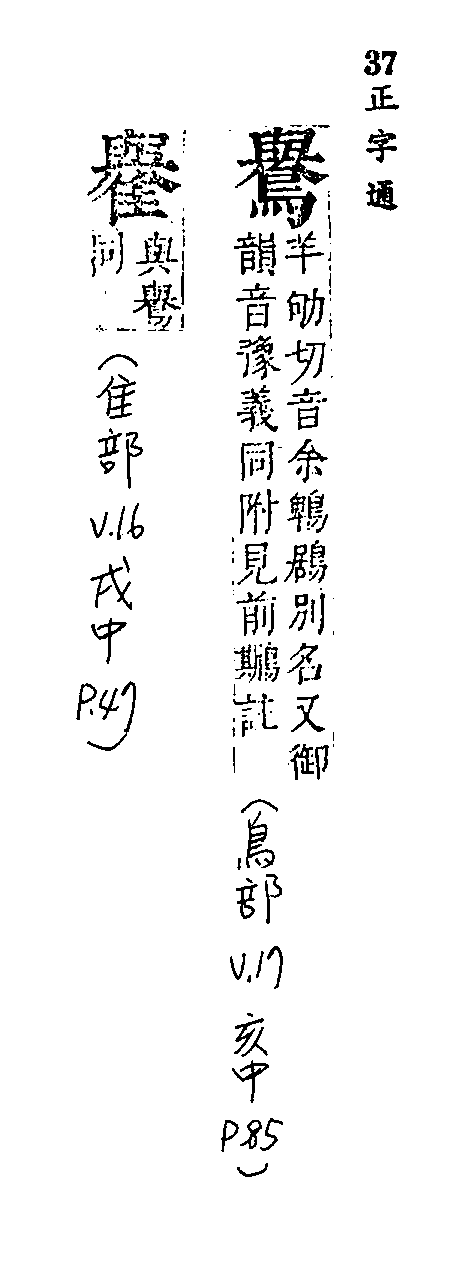 37 正字通
鸒
羊劬切音余鵯鶋別名又御
韻音豫義同附見前註
(鳥部 V.17 亥中 P.85)
與鸒
同
(隹部 V.16 戌中 P.47)